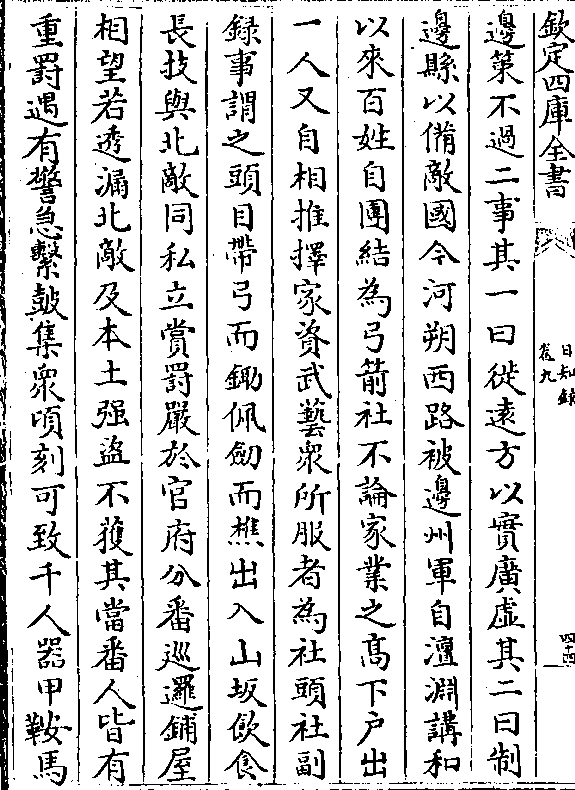 欽定四庫全書
日知錄
卷九
四十四
邊策不過二事其一曰從遠方以實廣虛其二曰制
邊縣以備敵國今河朔西路被邊州軍自澶淵講和
以來百姓自團結為弓箭社不論家業之高下户出
一人又自相推擇家資武藝衆所服者為社頭社副
録事謂之頭目帶弓而鋤佩劒而樵出入山坂飲食
長技與北敵同私立賞罰嚴於官府分番巡邏鋪屋
相望若透漏北敵及本土强盜不獲其當番人皆有
重罰遇有警急繫鼔集衆頃刻可致千人器甲鞍馬